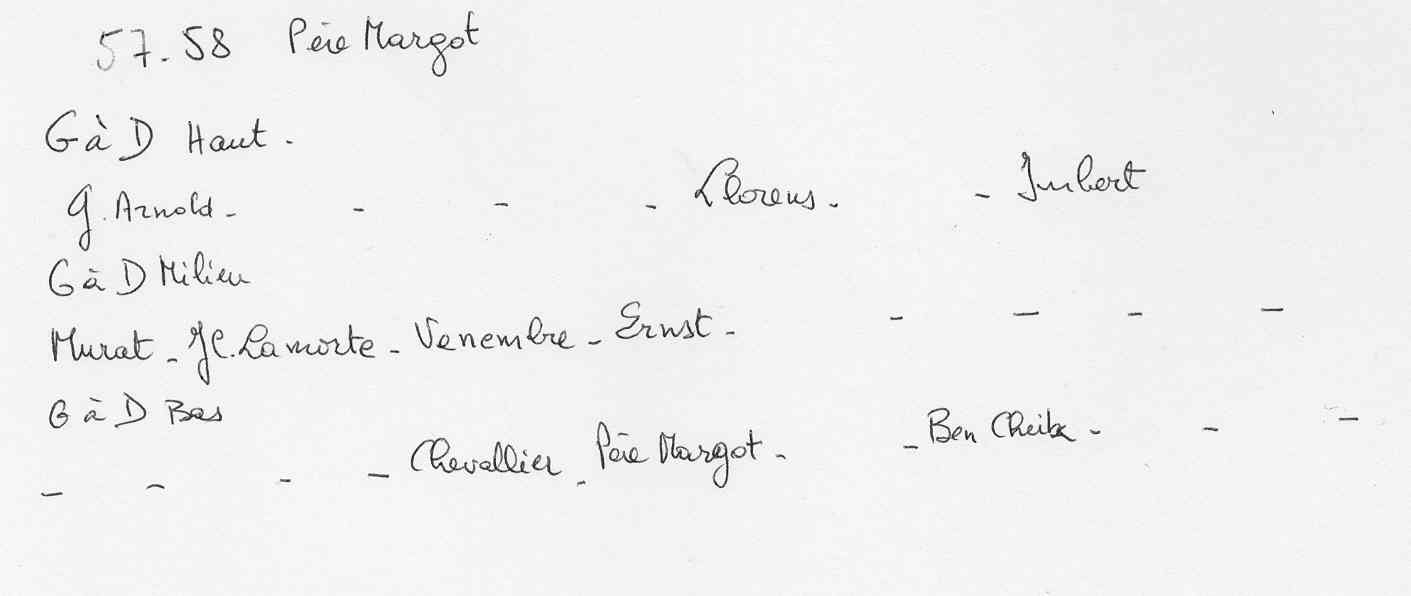 57.58 Père Margot
G à D Haut.
G. Arnold - - - - Llorens. - Imbert
G à D Milieu
Murat - JC. Lamorte - Venembre - Ernst - - - - -
G à D Bas
- - - - Chevallier - Père Margot - - Ben Cheikh - - -